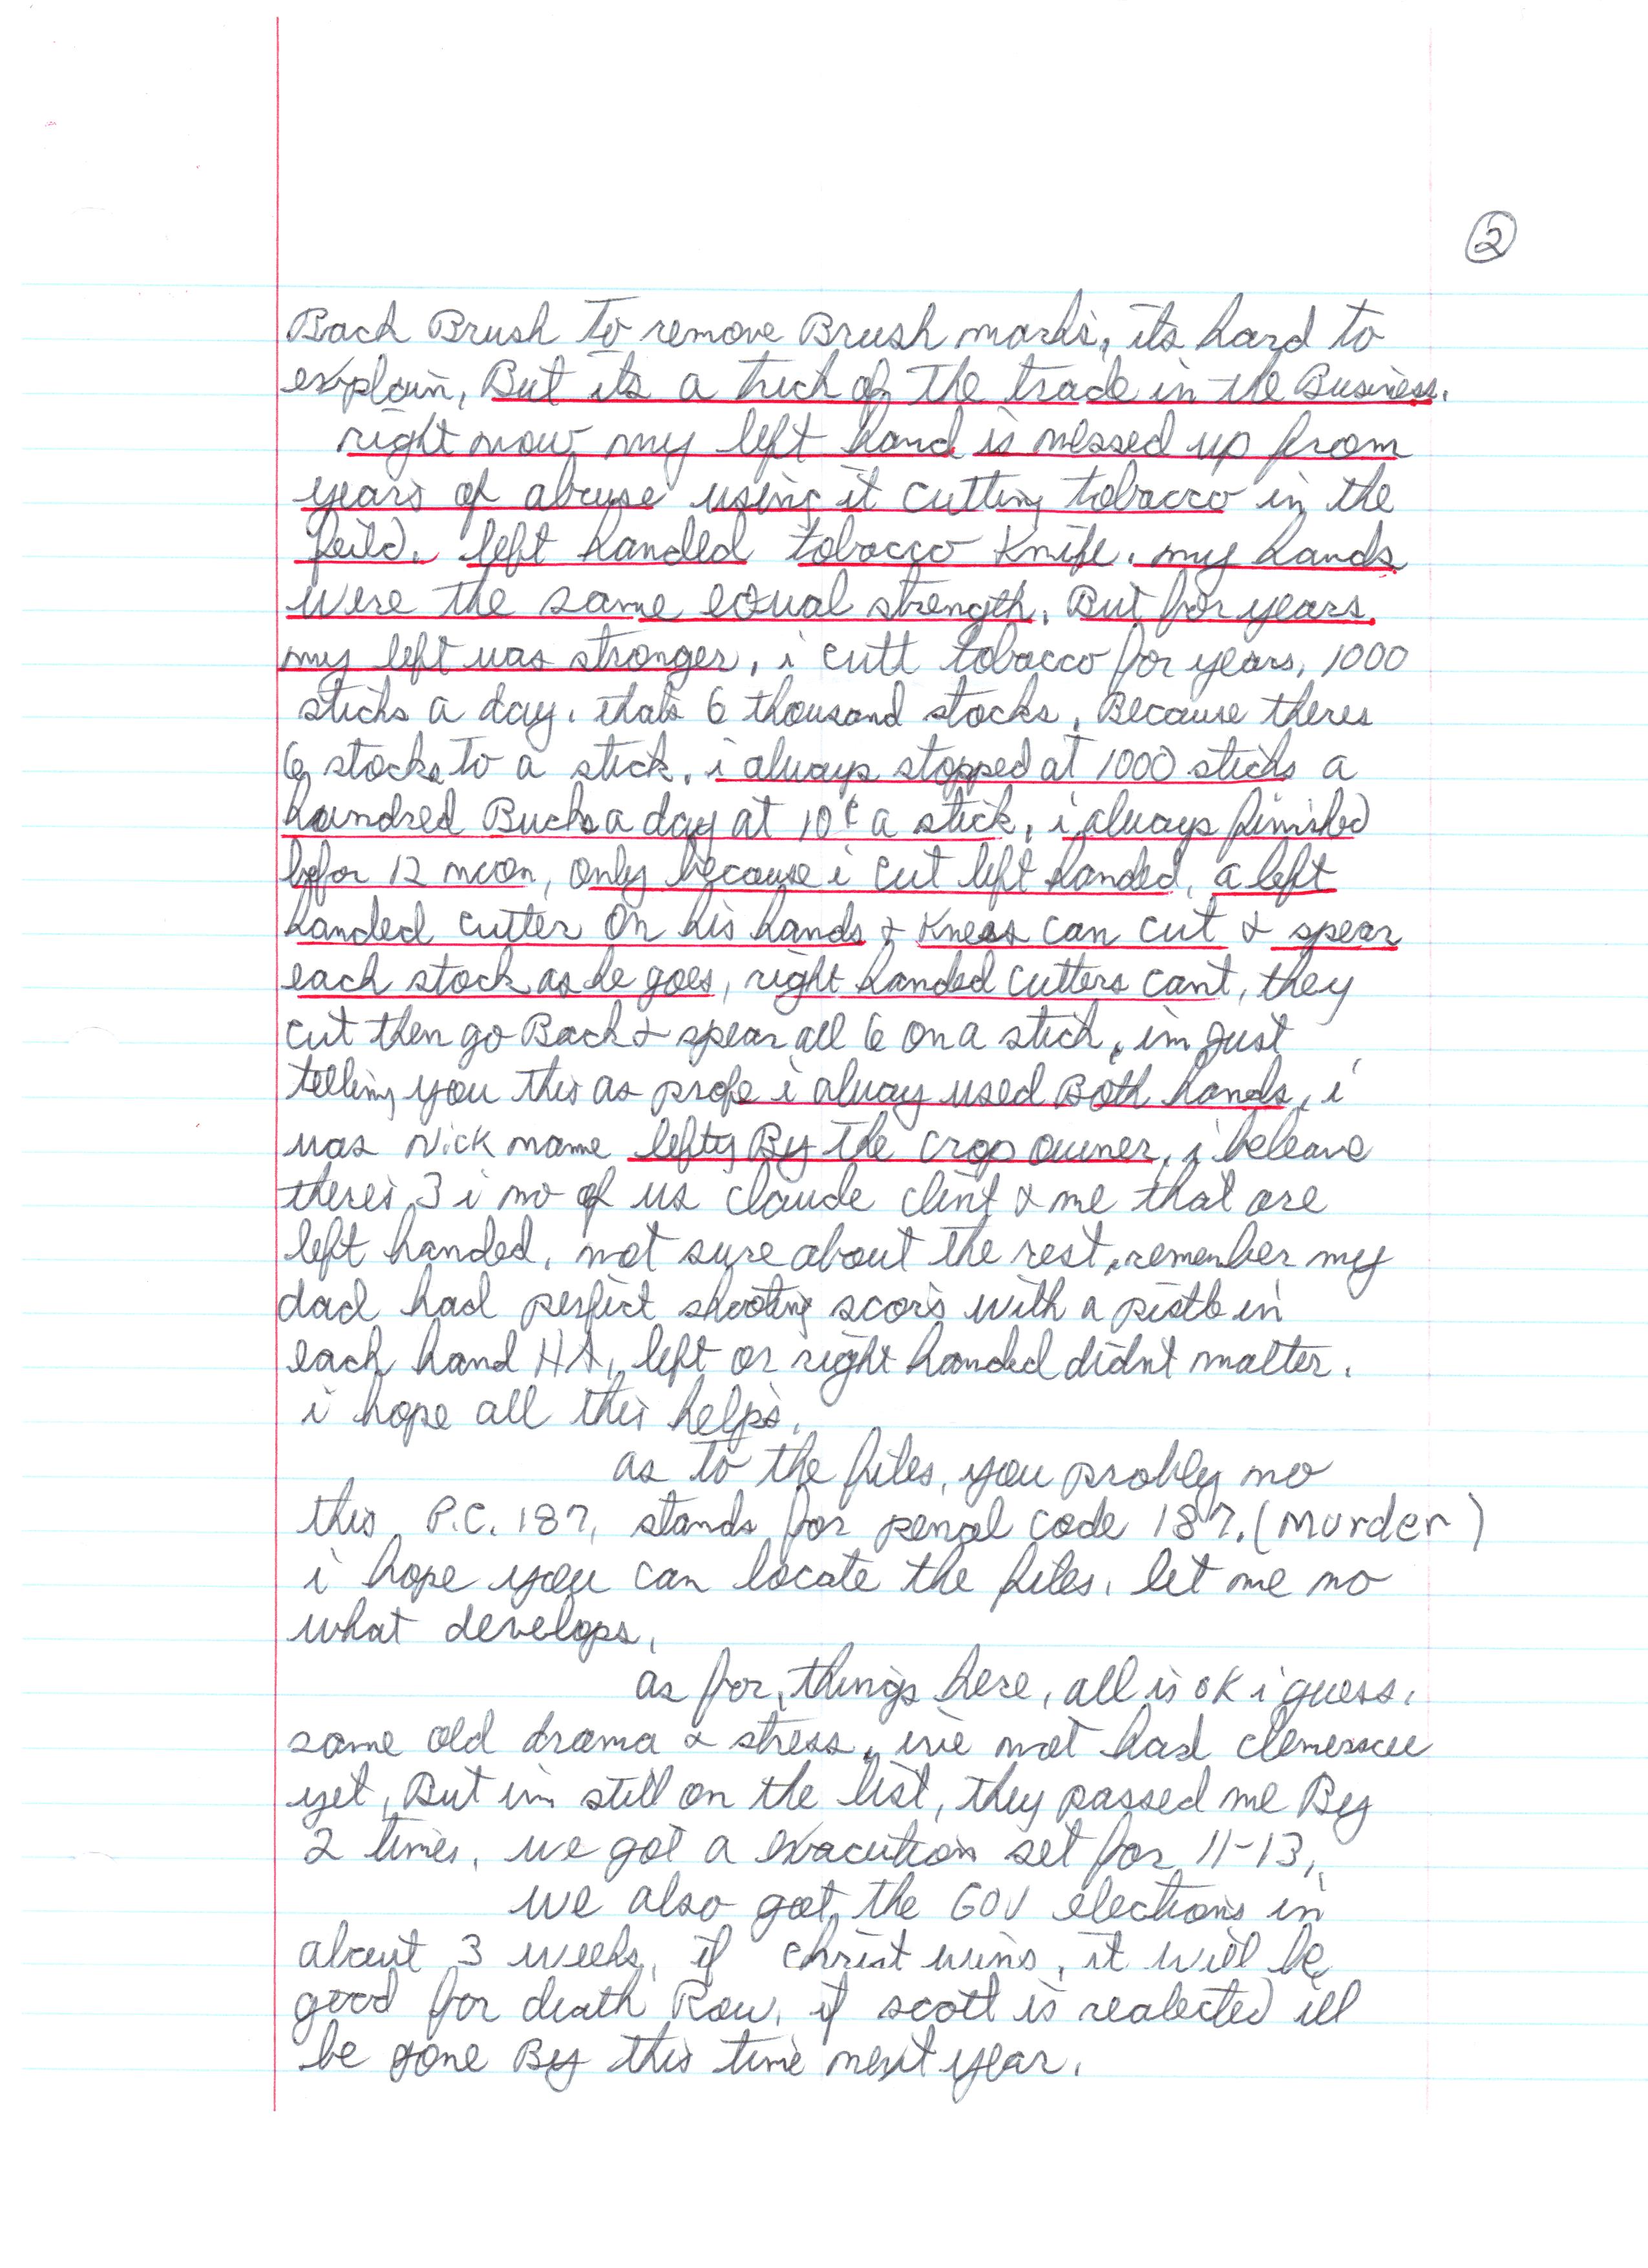 2
Back Brush to remove Brush marks, its hard to
explain, But its a trick of the trade in the Business.
right now my left hand is messed up from
years of abuse using it cutting tobacco in the
feild. left handed tobacco Knife. my hands
were the same equal strength. But for years.
my left was stronger, i cutt tobacco for years, 1000
sticks a day. thats 6 thousand stocks, Because theres
6 stocks to a stick. i always stopped at 1000 sticks a
hundred Bucks a day at 10¢ a stick, i always finished
befor 12 noon, only because i cut left handed, a left
handed cutter on his hands & Knees can cut & spear
each stock as he goes, right handed cutters cant, they
cut then go Back & spear all 6 on a stick, im just
telling you this as profe i alway used Both hands, i
was Nick name lefty By the crop owner, i beleave
theres 3 i no of us claude clint & me that are
left handed, not sure about the rest, remember my
dad had perfict shooting scors with a pistle in
each hand HA, left or right handed didnt matter.
i hope all this helps.
as to the files, you probley no
this P.C. 187, stands for penal code 187. (Murder)
i hope you can locate the files, let me no
what develops.
as for things here, all is ok i guess.
same old drama & stress, ive not had clemencee
yet, But im still on the list, they passed me By
2 times, we got a exacution set for 11-13,
we also got the GOV elections in
about 3 weeks, if christ wins, it will be
good for death Row, if scott is realected ill
be gone By this time next year.